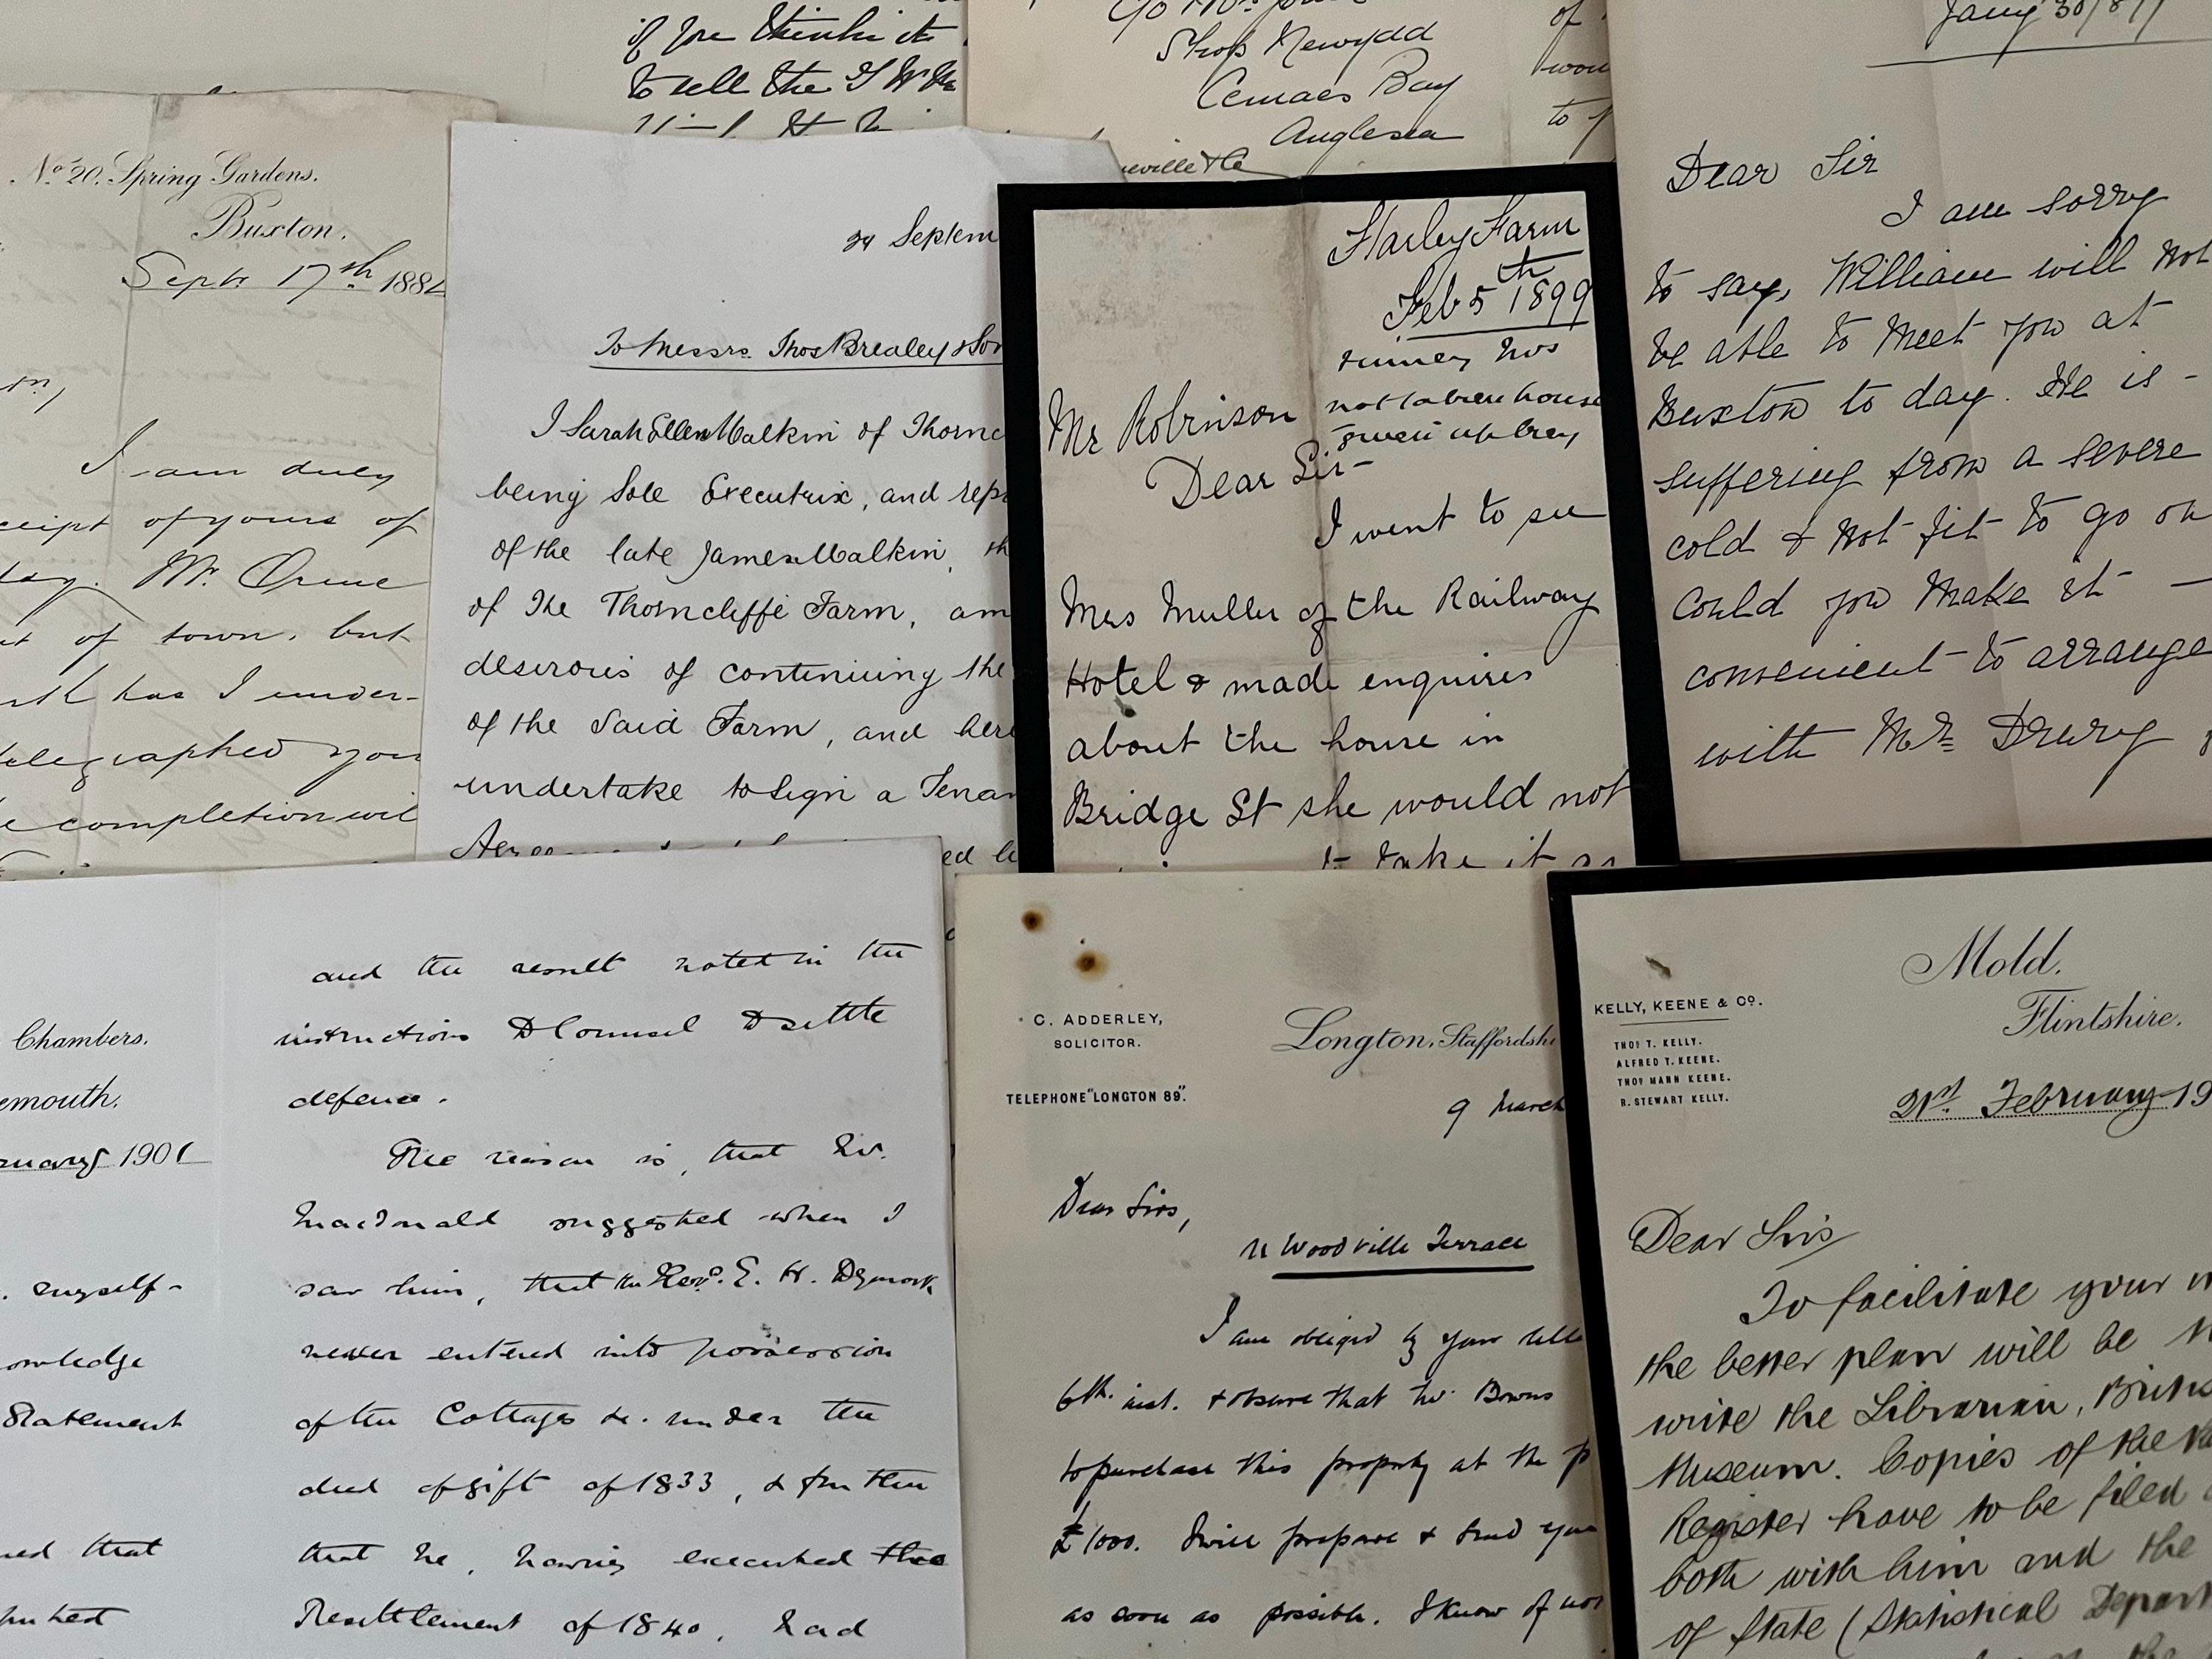 if you think it
to sell the
Shop Newydd
Cemaes Bay
Anglesea
of
to
Jany 30/
Dear Sir
I am sorry
to say, William will not
be able to meet you at
Buxton to day. He is -
suffering from a severe
cold & not fit to go on
Could you make it —
convenient to arrange
with Mr Drury
No. 20, Spring Gardens.
Buxton.
Sept 17th 188
I am duly
ceipt of yours of
day. Mr. Orme
t of town, but
has I under-
elegraphed you
e completion wil
24 Septem
To Messrs. Thos Brealey & Son
I Sarah Ellen Malkin of Thornc
being Sole Executrix, and repr
of the late James Malkin, th
of The Thorncliffe Farm, am
desirous of continuing the
of the Said Farm, and here
undertake to Sign a Tenan
Agree
Harley Farm
Feb 5th 1899
not taken house
Mr Robinson
Dear Sir -
I went to see
Mrs Muller of the Railway
Hotel & made enquires
about the house in
Bridge St she would not
take it
Chambers.
emouth.
ruary 1901
myself -
owledge
Statement
ned that
and the result noted in the
instructions to Counsel to settle
defence.
The reason is, that Mr.
MacDonald suggested when I
saw him, that the Revd. E. H. Dymock
never entered into possession
of the Cottages &c. under the
deed of gift of 1833, & further
that he, having executed the
Resettlement of 1840, had
C. ADDERLEY,
SOLICITOR.
TELEPHONE "LONGTON 89".
Longton, Staffordshi
9 March
Dear Sirs,
11 Woodville Terrace
I am obliged by your lette
6th. inst. & observe that Mr. Bowns
to purchase this property at the p
£1000. I will prepare & send you
as soon as possible. I know of no
KELLY, KEENE & Co.
THOS T. KELLY.
ALFRED T. KEENE.
THOS MANN KEENE.
R. STEWART KELLY.
Mold.
Flintshire.
21st. February 19
Dear Sirs
To facilitate your
the better plan will be
write the Librarian, British
Museum. Copies of the
Register have to be filed
both with him and the
of State (Statistical Depart